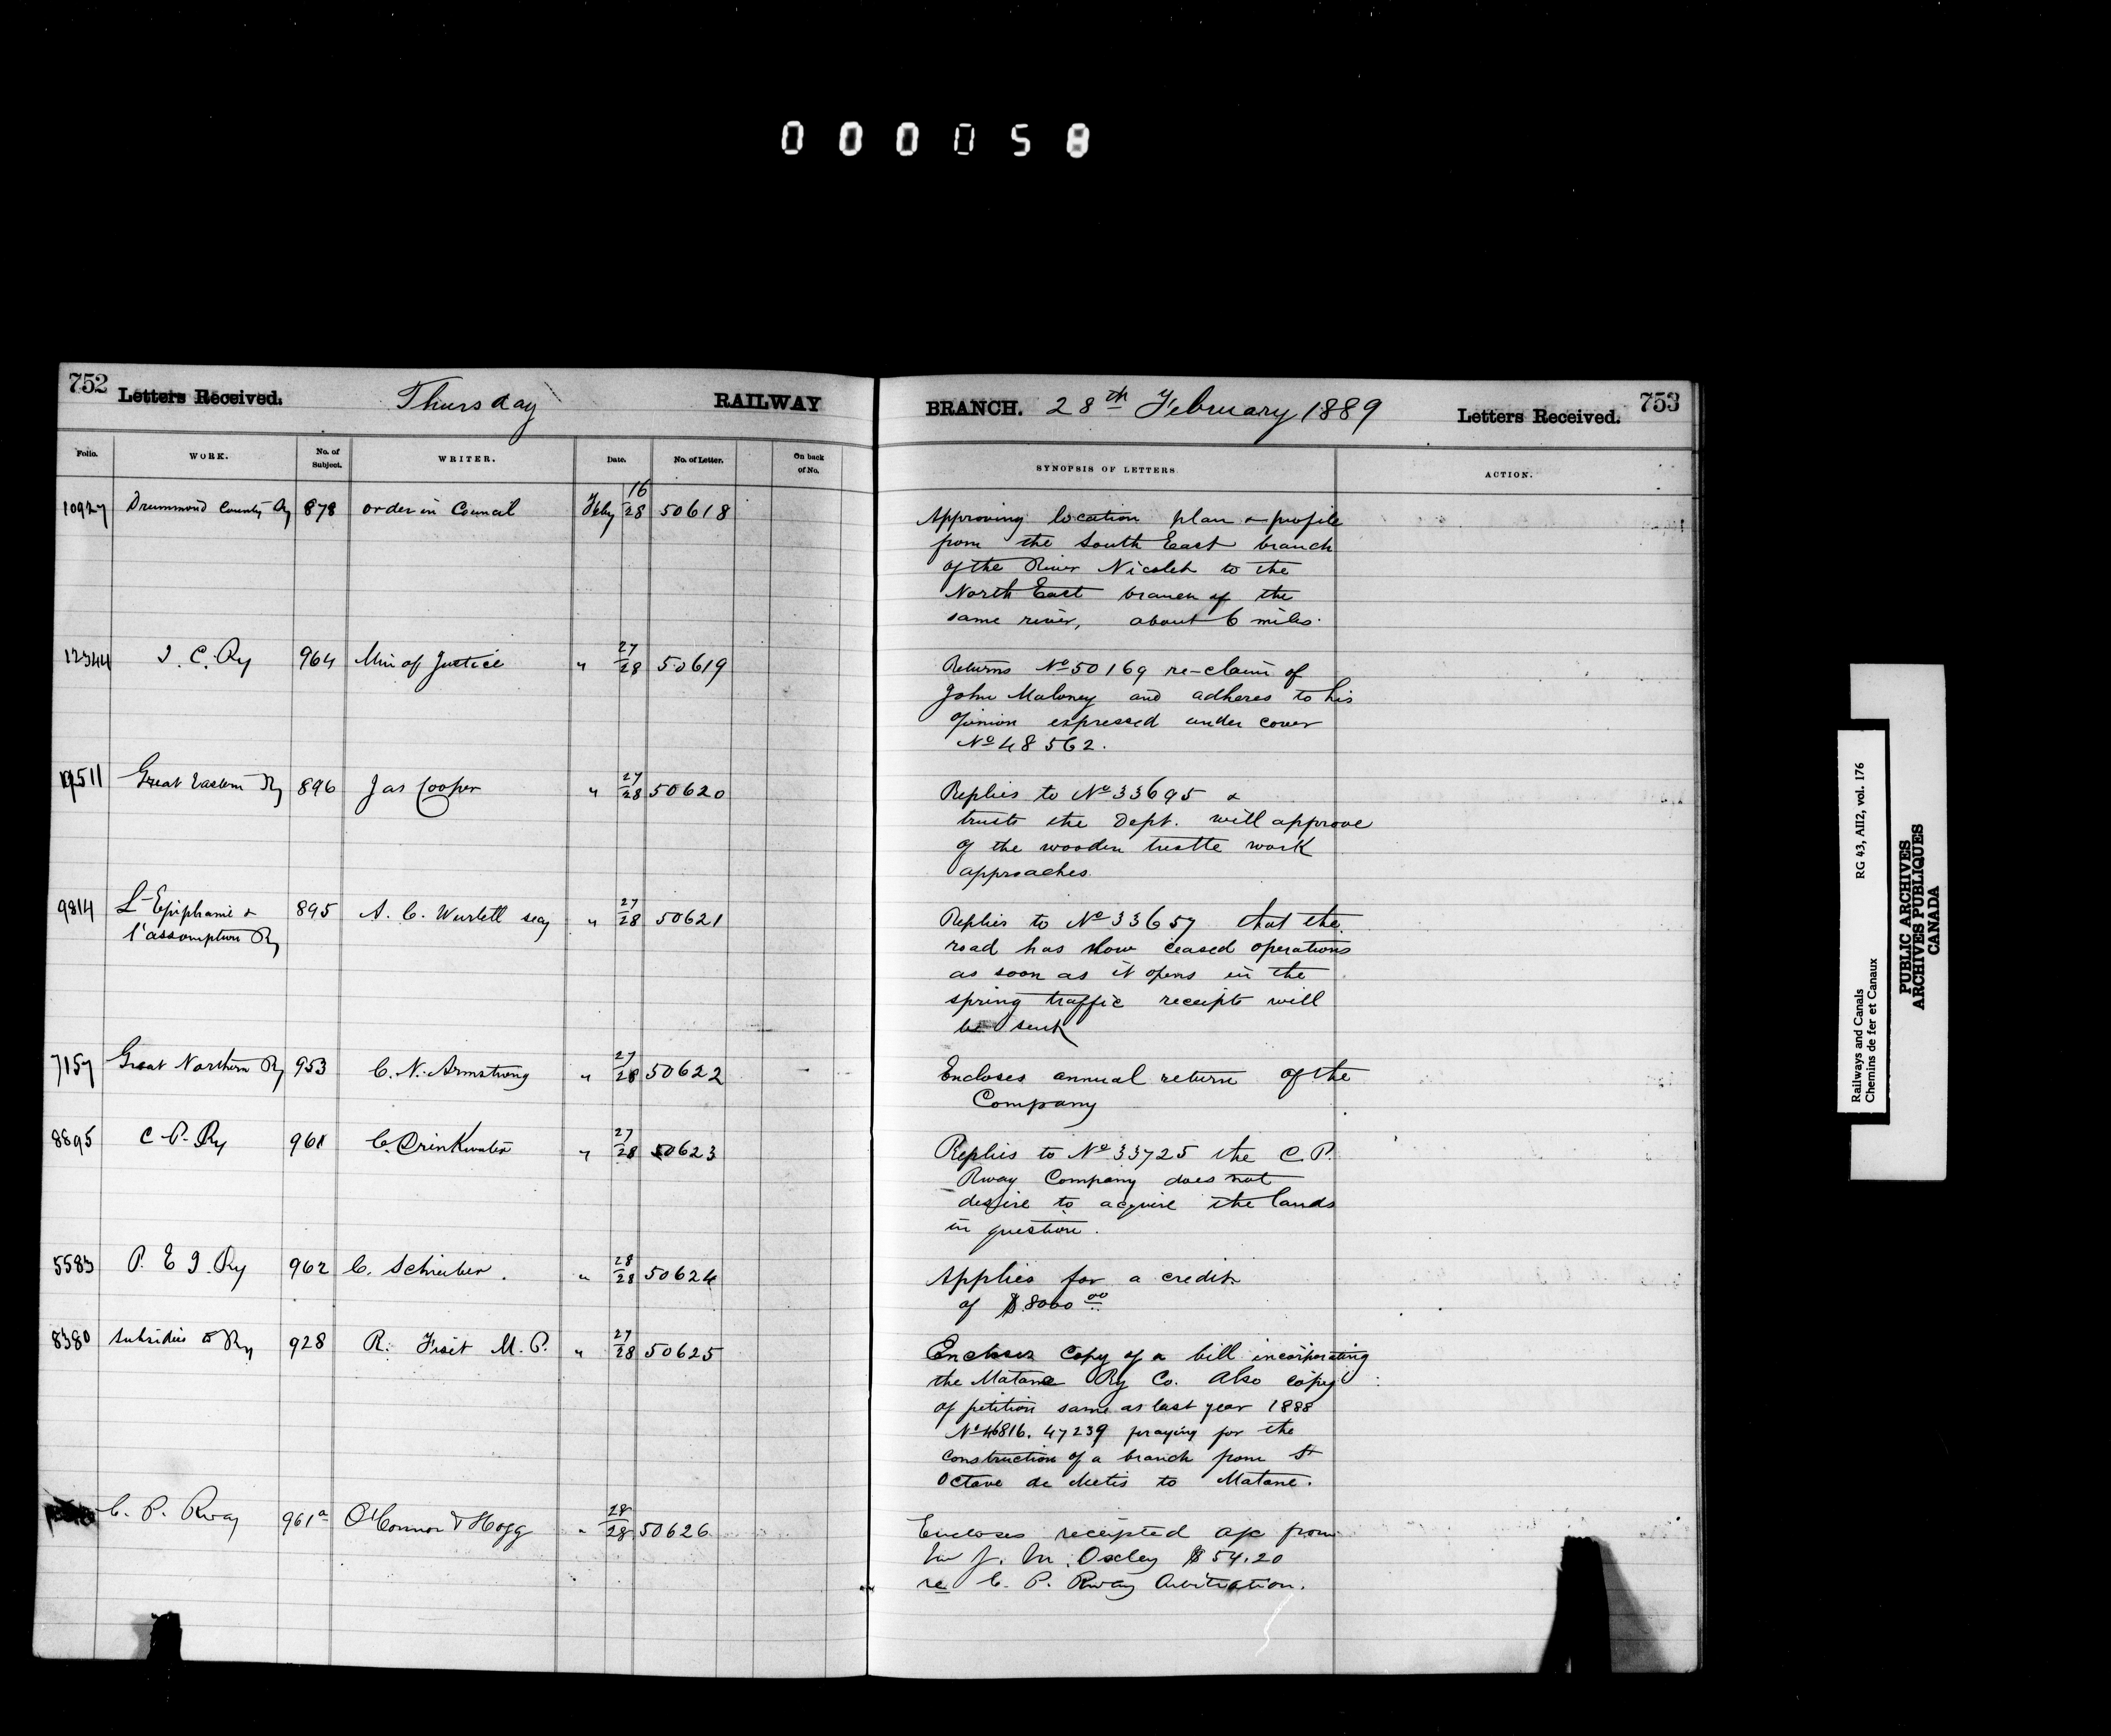 000058
752 Letters Received. Thursday RAILWAY
BRANCH. 28th February 1889 Letters Received. 753
Folio. WORK. No. of Subject. WRITER. Date. No. of Letter. On back of No.
SYNOPSIS OF LETTERS ACTION.
10927 Drummond County Ry 878 order in Council Feby 16/28 50618
Approving location plan & profile
from the South East branch
of the River Nicolet to the
North East branch of the
same river, about 6 miles.
12344 I. C. Ry 964 Min of Justice " 27/28 50619
Returns No 50169 re-claim of
John Maloney and adheres to his
opinion expressed under cover
No 48562.
Great Eastern Ry 896 Jas Cooper " 27/28 50620
Replies to No 33695 &
trusts the Dept. will approve
of the wooden trestle work
approaches.
9814 L'Epiphanie & 895 A. C. Wurtell secy " 27/28 50621
l'assomption Ry
Replies to No 33657 that the
road has now ceased operations
as soon as it opens in the
spring traffic receipts will
be sent
7157 Great Northern Ry 953 C. N. Armstrong " 27/28 50622
Encloses annual return of the
Company
8895 C P. Ry 961 C. Drinkwater " 27/28 50623
Replies to No 33725 the C. P.
Rway Company does not
desire to acquire the lands
in question.
5583 P. E I. Ry 962 C. Schreiber. " 28/28 50624
Applies for a credit
of $8000 00
8380 Subsidies to Ry 928 R. Fiset M. P. " 27/28 50625
Encloses Copy of a bill incorporating
the Matane Ry Co. Also copy
of petition same as last year 1888
No 46816. 47239 praying for the
construction of a branch from St
Octave de Metis to Matane.
C. P. Rway 961a O'Connor & Hogg " 28/28 50626
Encloses receipted a/c from
J. M. Oxley $54.20
re C. P. Rway Arbitration.
Railways and Canals RG 43, AII2, vol. 176
Chemins de fer et Canaux
PUBLIC ARCHIVES
ARCHIVES PUBLIQUES
CANADA